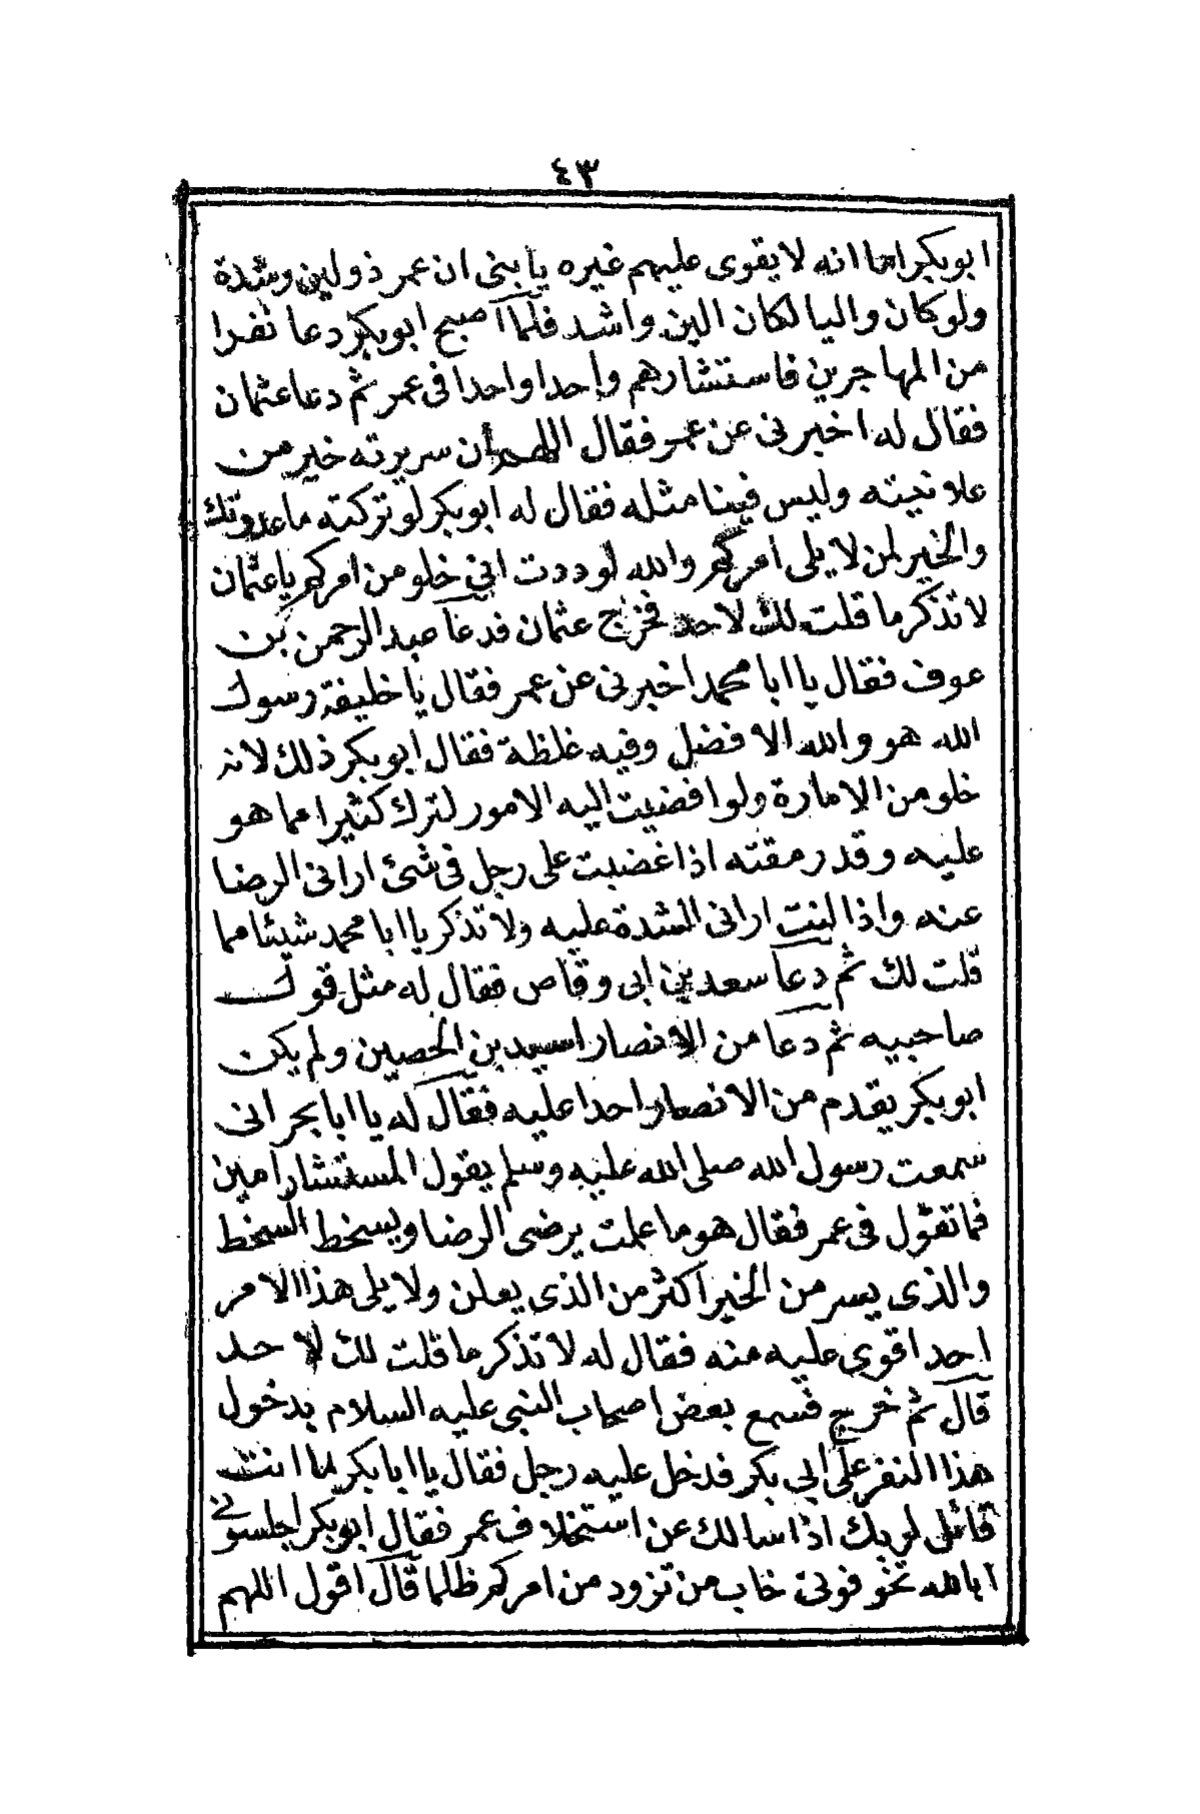 ٤٣
ابوبكر اما انه لا يقوى عليهم غيره يا بنى ان عمر ذو لين وشدة
ولو كان واليا لكان الين واشد فلما اصبح ابوبكر دعا نفرا
من المهاجرين فاستشارهم واحدا واحدا فى عمر ثم دعا عثمان
فقال له اخبرنى عن عمر فقال اللهم أن سريرته خير من
علانيته وليس فينا مثله فقال له ابوبكر لو تركته ما عدوتك
والخير لمن لا يلى امركم والله لوددت انى خلو من امركم يا عثمان
لا تذكر ما قلت لك لاحد فخرج عثمان فدعا عبد الرحمن بن
عوف فقال يا ابا محمد اخبرنى عن عمر فقال يا خليفة رسول
الله هو والله الافضل وفيه غلظة فقال ابوبكر ذلك لانه
خلو من الامارة ولو افضيت اليه الامور لترك كثيرا مما هو
عليه وقد رمقته اذا غضبت على رجل فى شئ ارانى الرضا
عنه واذا لنت ارانى الشدة عليه ولا تذكر يا ابا محمد شيئا مما
قلت لك ثم دعا سعد بن ابى وقاص فقال له مثل قول
صاحبيه ثم دعا من الانصار اسيد بن الحصين ولم يكن
ابوبكر يقدم من الانصار احدا عليه فقال له يا ابا بحر انى
سمعت رسول الله صلى الله عليه وسلم يقول المستشار امين
فما تقول فى عمر فقال هو ما علمت يرضى الرضا ويسخط السخط
والذى يسر من الخير اكثر من الذى يعلن ولا يلى هذا الامر
احد اقوى عليه منه فقال له لا تذكر ما قلت لك لا حد
قال ثم خرج فسمع بعض اصحاب النبى عليه السلام بدخول
هذا النفر على ابى بكر فدخل عليه رجل فقال يا ابا بكر ما انت
قائل لربك اذا سالك عن استخلاف عمر فقال ابوبكر اجلسونى
ابالله تخوفونى خاب من تزود من امركم ظلما قال اقول اللهم